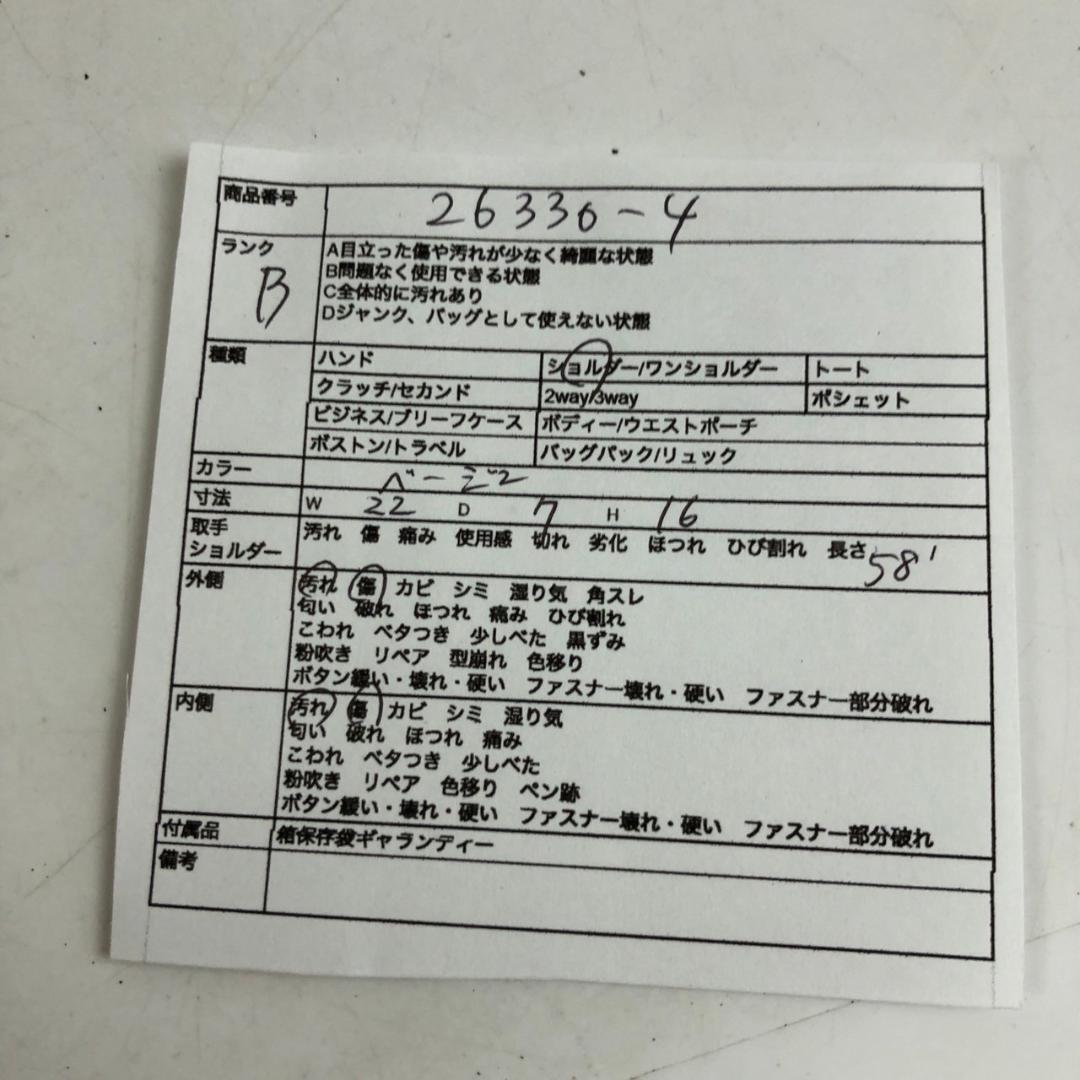 商品番号 26330-4
ランク B
A目立った傷や汚れが少なく綺麗な状態
B問題なく使用できる状態
C全体的に汚れあり
Dジャンク、バッグとして使えない状態
種類 ハンド ショルダー/ワンショルダー トート
クラッチ/セカンド 2way/3way ポシェット
ビジネス/ブリーフケース ボディー/ウエストポーチ
ボストン/トラベル バッグパック/リュック
カラー ベージュ
寸法 W 22 D 7 H 16
取手 汚れ 傷 痛み 使用感 切れ 劣化 ほつれ ひび割れ 長さ 58
ショルダー
外側 汚れ 傷 カビ シミ 湿り気 角スレ
匂い 破れ ほつれ 痛み ひび割れ
こわれ ベタつき 少しべた 黒ずみ
粉吹き リペア 型崩れ 色移り
ボタン緩い・壊れ・硬い ファスナー壊れ・硬い ファスナー部分破れ
内側 汚れ 傷 カビ シミ 湿り気
匂い 破れ ほつれ 痛み
こわれ ベタつき 少しべた
粉吹き リペア 色移り ペン跡
ボタン緩い・壊れ・硬い ファスナー壊れ・硬い ファスナー部分破れ
付属品 箱保存袋ギャランディー
備考